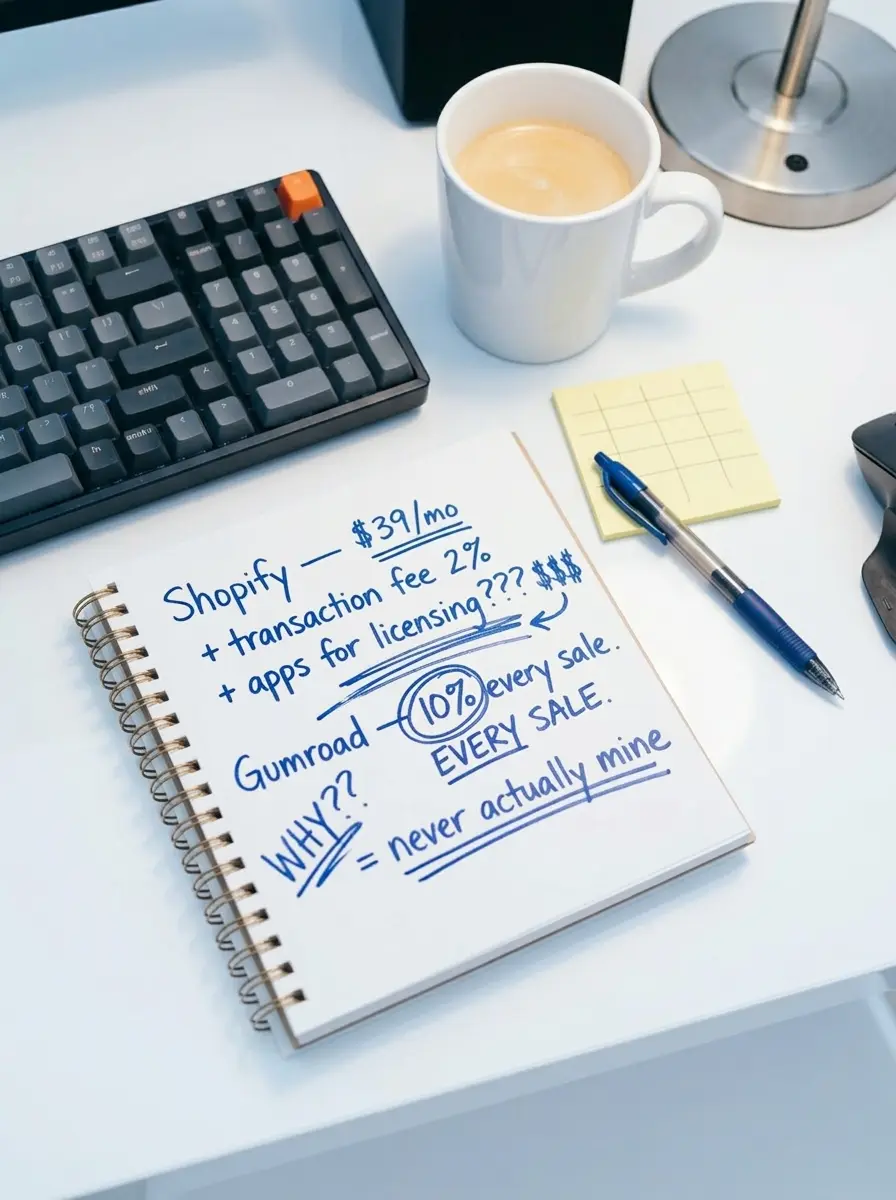 Shopify — $39/mo
+ transaction fee 2%
+ apps for licensing??? $$$
Gumroad — 10% every sale.
EVERY SALE.
WHY??
= never actually mine